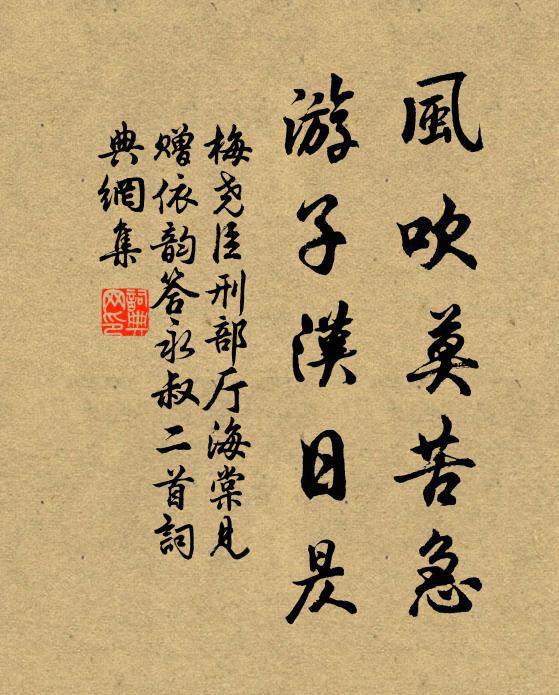 風吹莫苦急
游子漢日昃
梅尧臣刑部厅海棠见
赠依韵答永叔二首詞
典網集
詞典
网印